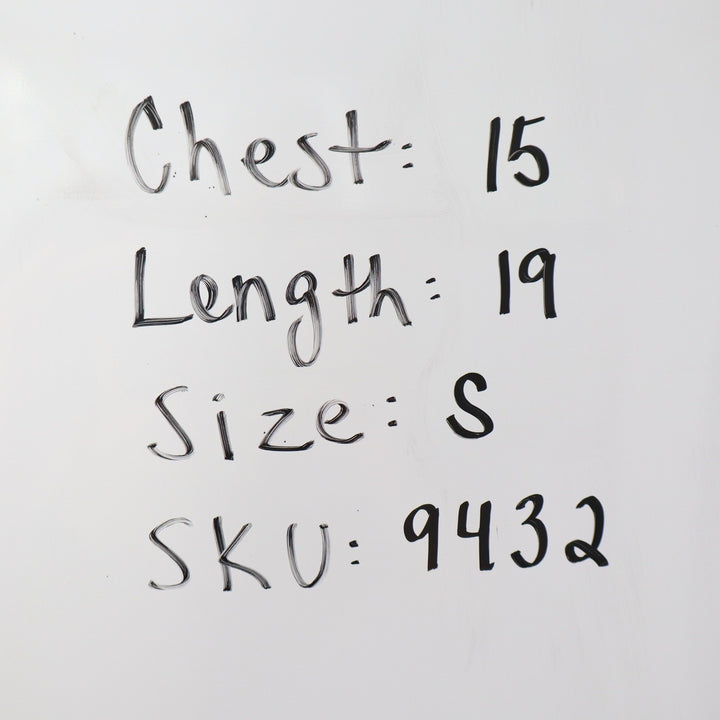 Chest: 15
Length: 19
Size: S
SKU: 9432